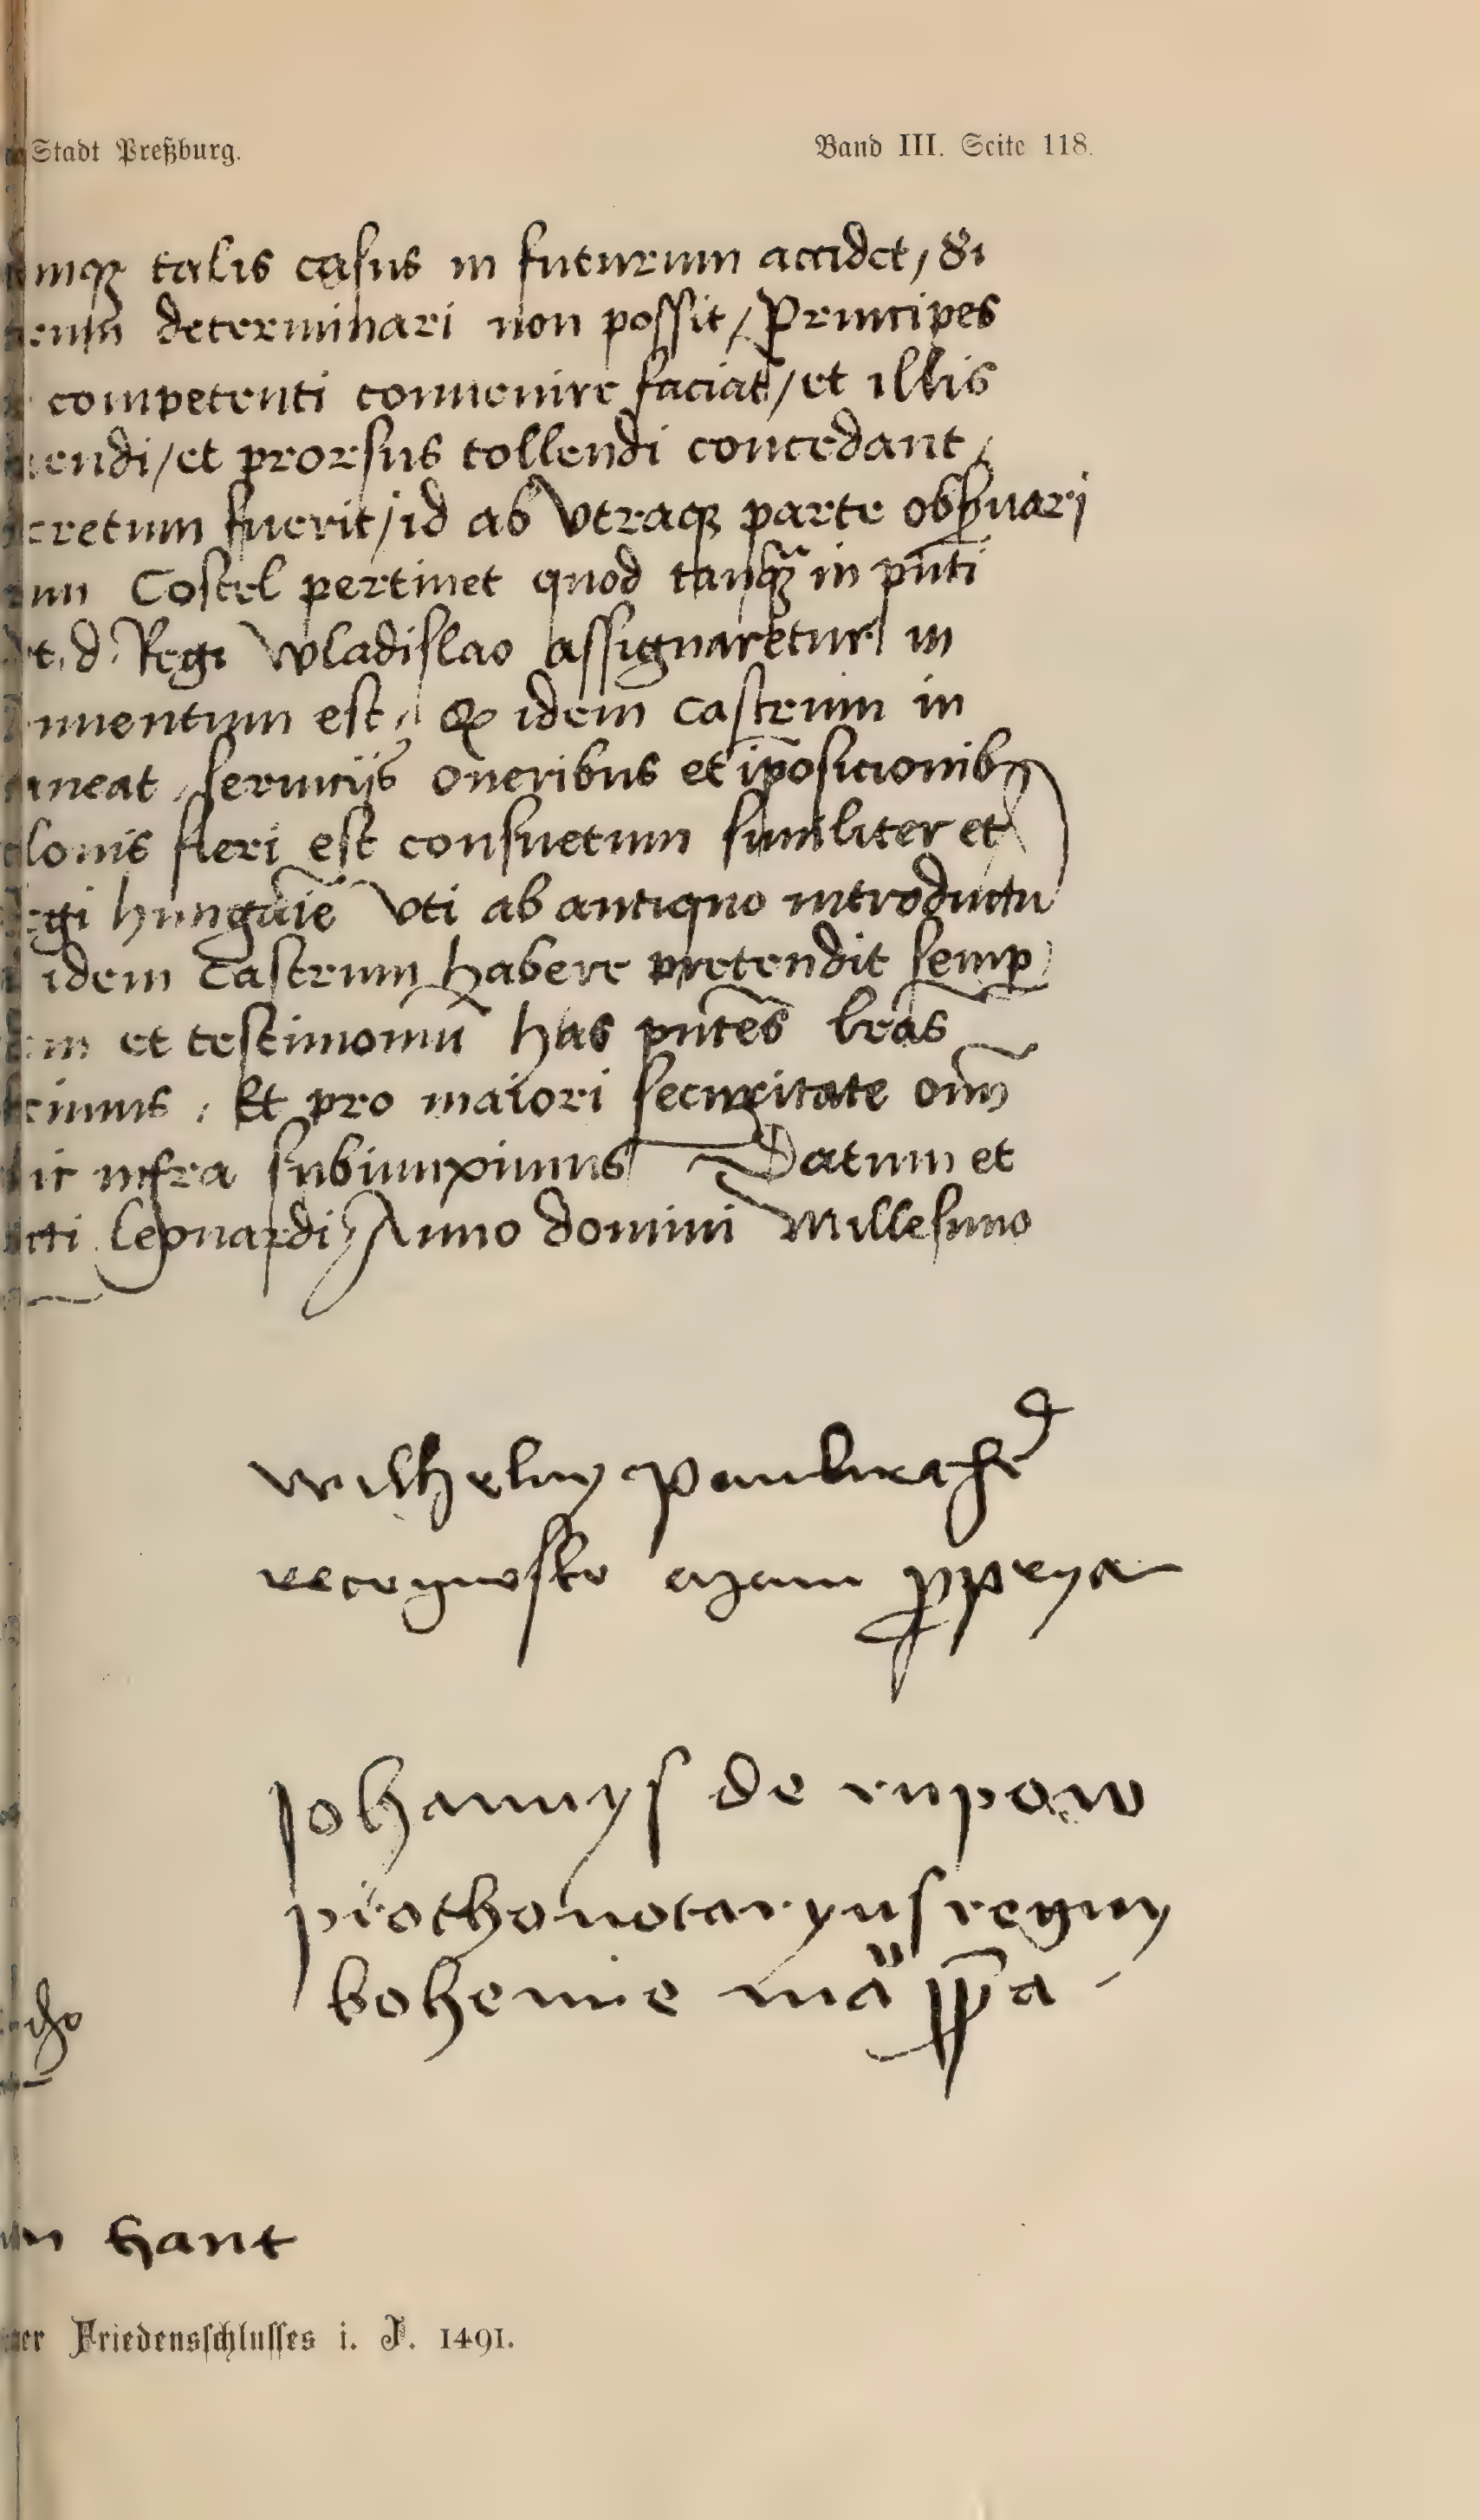 Stadt Preßburg.
Band III. Seite 118.
talis casus in futurum accidet, &
determinari non possit / Principes
competenti conuenire faciat / et illis
endi / et prorsus tollendi concedant /
cretum fuerit / id ab Vtraqꝫ parte obseruari
Costel pertinet quod tanqꝫ in pñti
d. Regi Wladislao assignaretur in
nuentum est, ꝙ idem castrum in
aneat, seruicijs oneribus et ĩposicionibꝫ
lonis fieri est consuetum similiter et
gi hungarie Vti ab antiquo introductũ
idem Castrum habere pretendit semp
et testimoniũ has pñtes lras
cimus, Et pro maiori securitate oim̃
infra subiunximus Datum et
cti leonardi Anno domini Millesimo
wilhelm
recognosko
Johannys de rupow
prothonotaryus regny
bohemie ma ꝓpa
hant
er Friedensschlusses i. J. 1491.